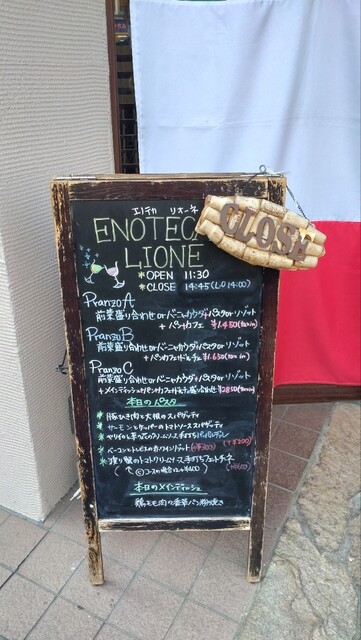 エノテカ リオーネ
ENOTECA
LIONE
CLOSE
*OPEN 11:30
*CLOSE 14:45 (L.O 14:00)
Pranzo A
前菜盛り合わせ or バーニャカウダ+パスタ or リゾット
+パン+カフェ ¥1.450(tax in)
Pranzo B
前菜盛り合わせ or バーニャカウダ+パスタ or リゾット
+パン+カフェ+ドルチェ ¥1.650(tax in)
Pranzo C
前菜盛り合わせ or バーニャカウダ+パスタ or リゾット
+メインディッシュ+パン+カフェ+ドルチェ盛り合わせ ¥2850(tax in)
本日のパスタ
*豚ひき肉と大根のスパゲッティ
*サーモンとケーパーのトマトソーススパゲッティ
のクリームソース手打ち (+¥200)
*ベーコンと の リゾット (+¥300)
*渡り蟹のトマトクリームソース手打ちフェットチーネ
(↑ ©コースの場合は+¥400)
本日のメインディッシュ
鶏モモ肉の香草パン粉焼き